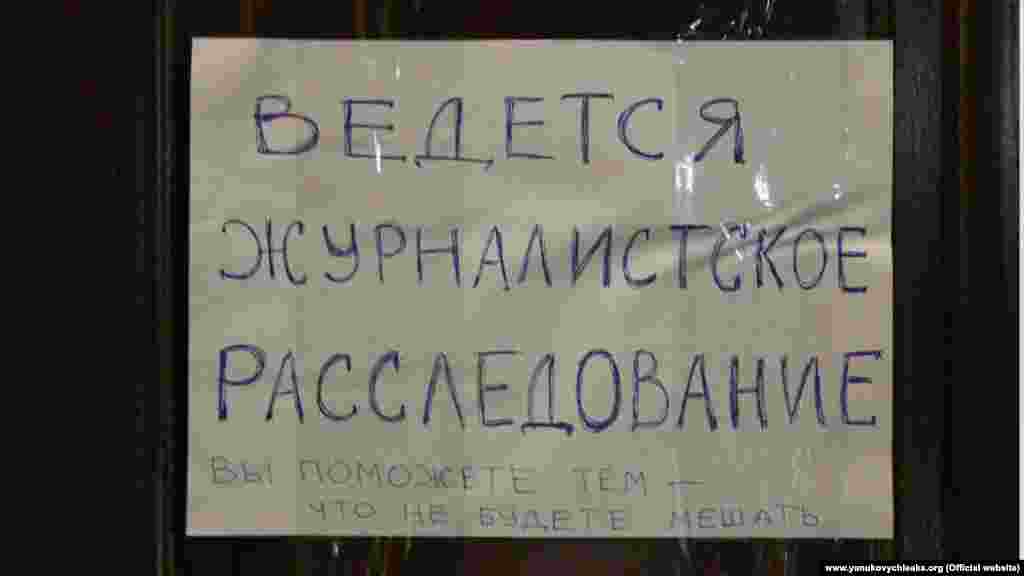 ВЕДЕТСЯ
ЖУРНАЛИСТСКОЕ
РАССЛЕДОВАНИЕ
ВЫ ПОМОЖЕТЕ ТЕМ —
ЧТО НЕ БУДЕТЕ МЕШАТЬ
www.yanukovychleaks.org (Official website)